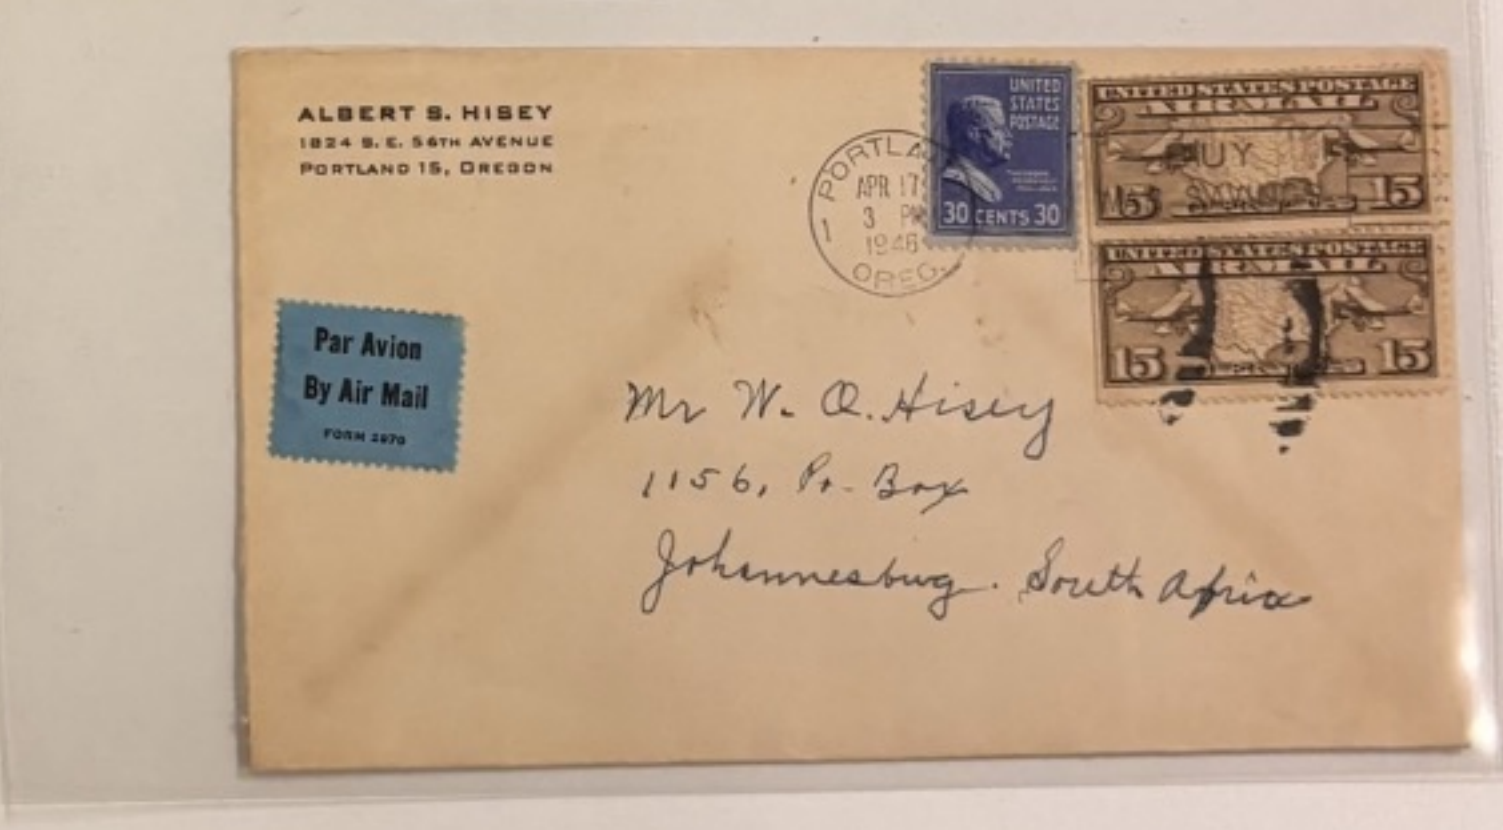 ALBERT S. HISEY
1824 S. E. 56TH AVENUE
PORTLAND 15, OREGON
PORTLA
APR 17
3 PM
1946
1
OREG.
UNITED
STATES
POSTAGE
30 CENTS 30
UNITED STATES POSTAGE
AIR MAIL
UY
15 15
UNITED STATES POSTAGE
AIR MAIL
15 15
Par Avion
By Air Mail
FORM 2970
Mr W. Q. Hisey
1156, Po. Box
Johannesburg. South Africa